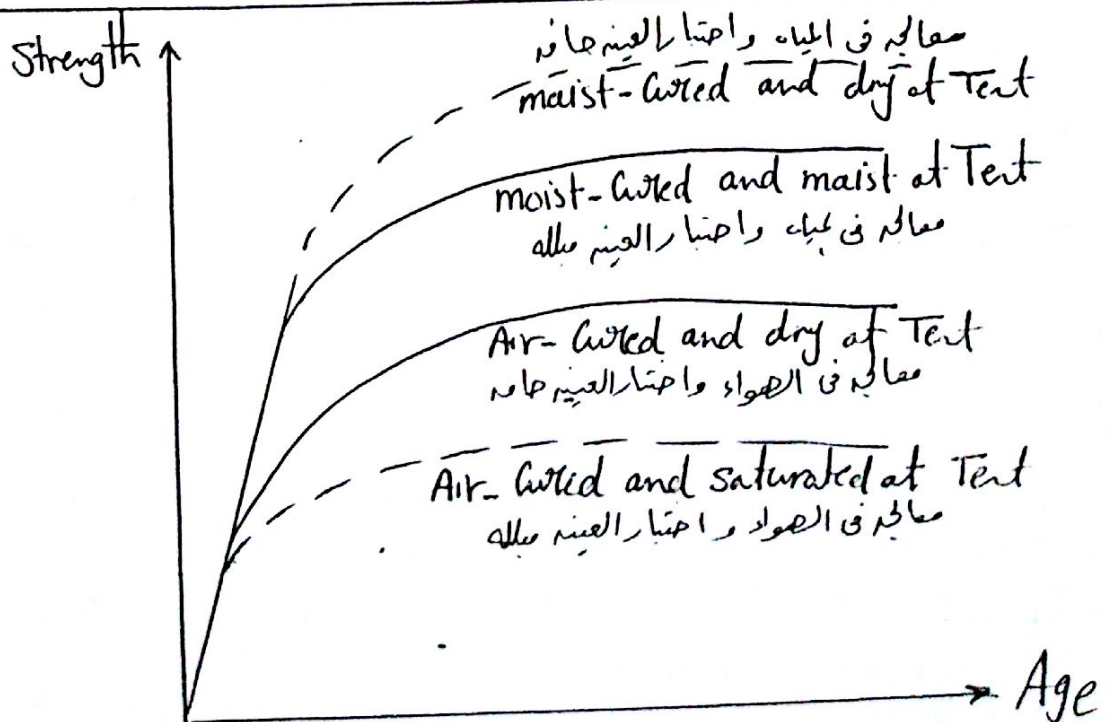 Strength
معالجه فى المياه واختبار العينه جافه
maist-Cured and dry at Test
moist-Cured and maist at Test
معالجه فى المياه واختبار العينه مبلله
Air-Cured and dry at Test
معالجه فى الهواء واختبار العينه جافه
Air-Cured and saturated at Test
معالجه فى الهواء واختبار العينه مبلله
Age